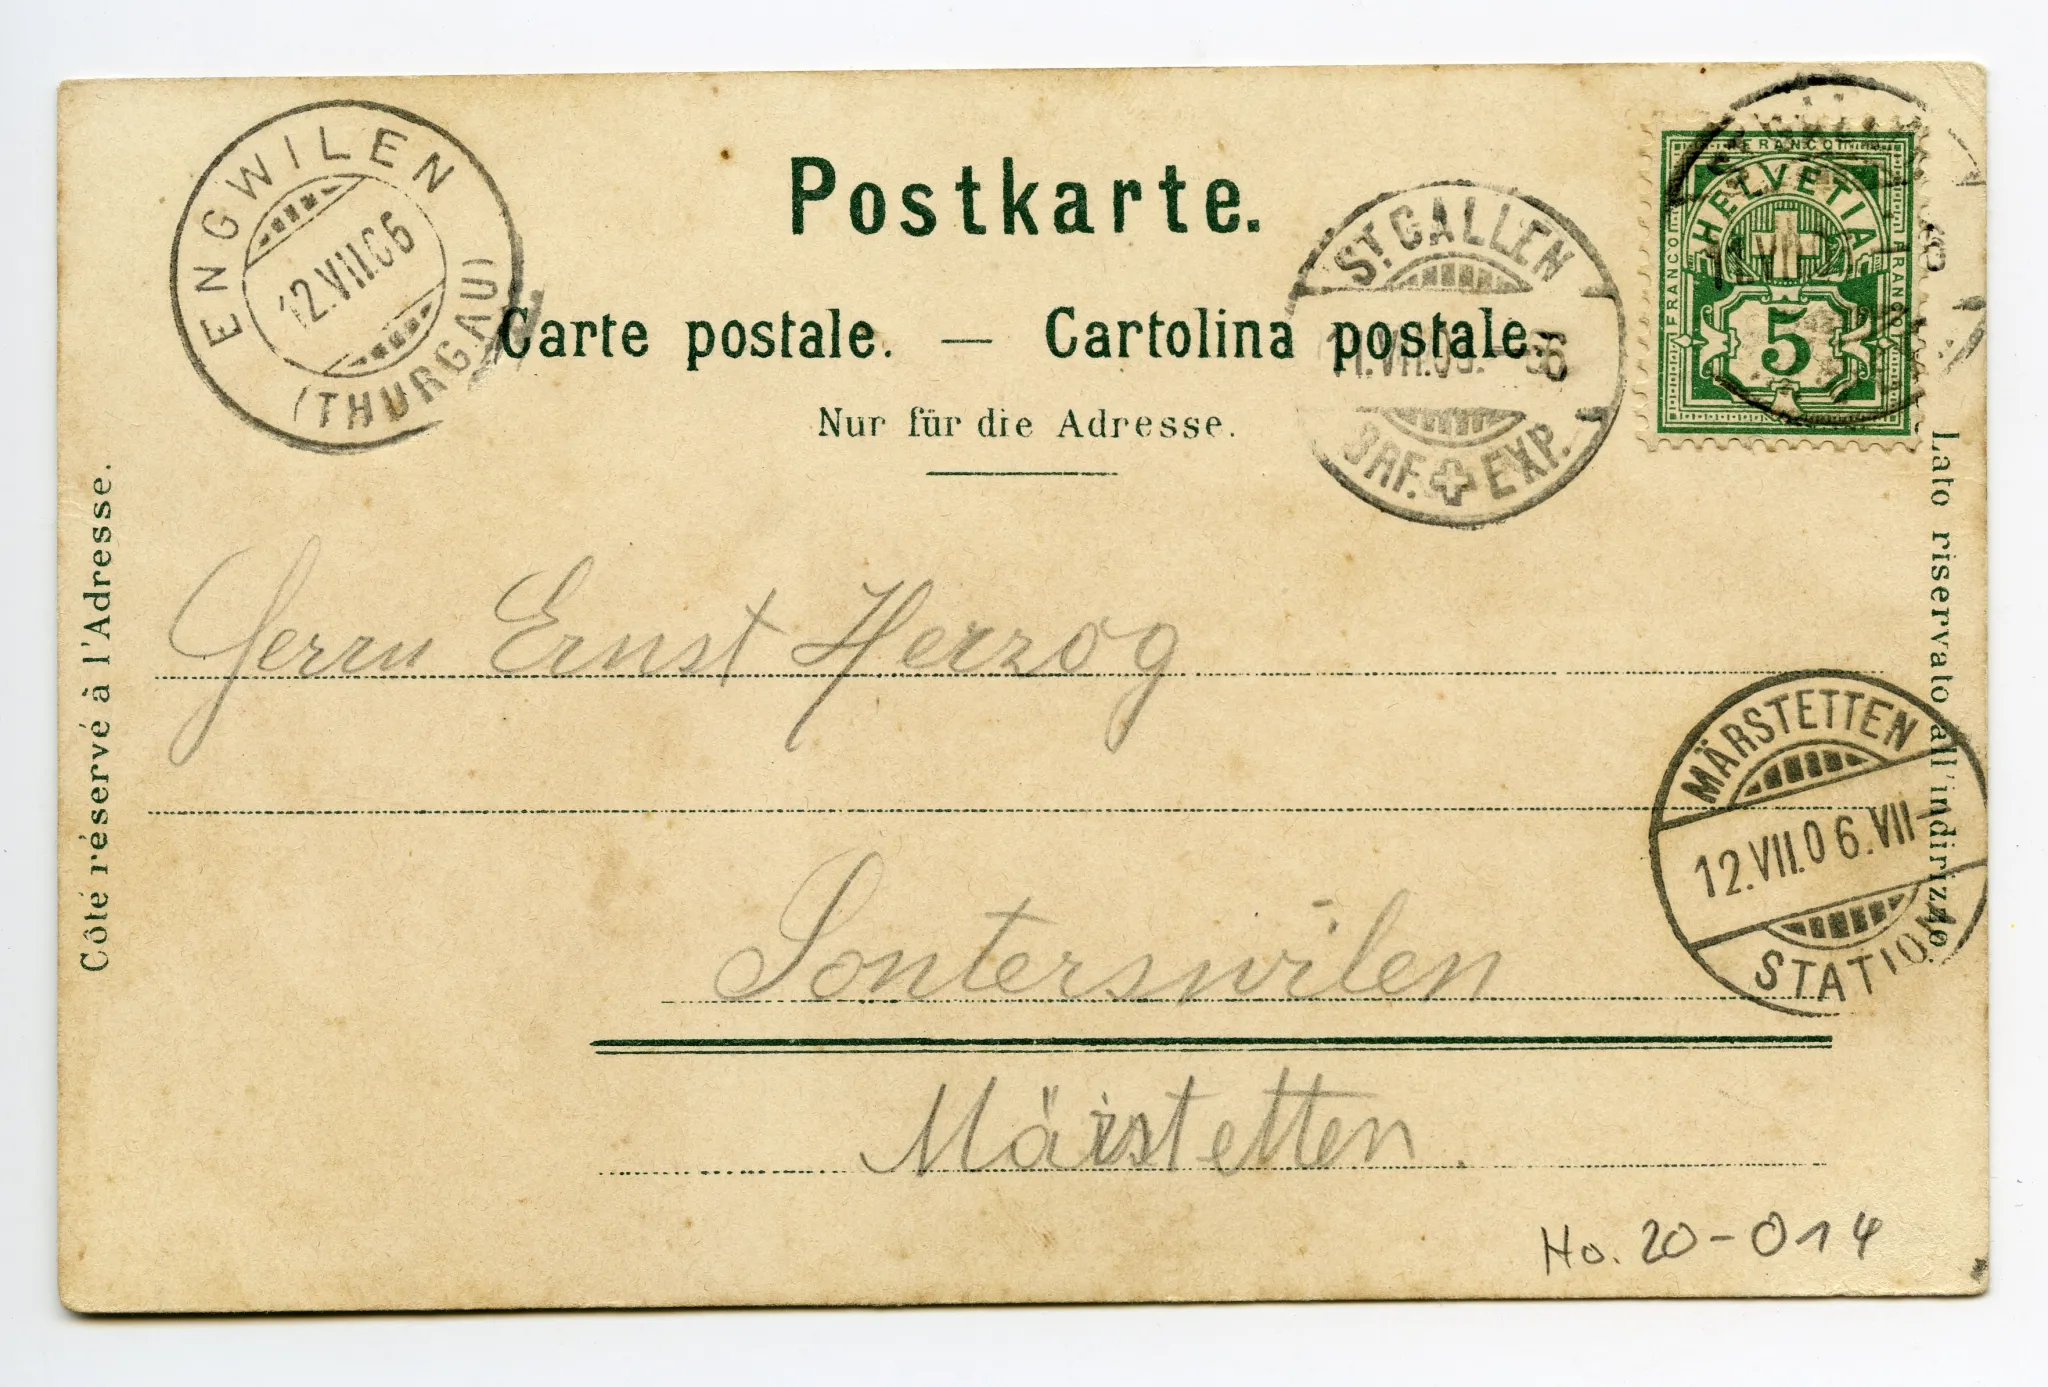 ENGWILEN
12.VII.06
(THURGAU)
Postkarte.
Carte postale. — Cartolina postale.
Nur für die Adresse.
ST. GALLEN
11.VII.06.
BRF. EXP.
FRANCO
HELVETIA
FRANCO
FRANCO
5
Côté réservé à l'Adresse.
Lato riservato all'indirizzo
Herrn Ernst Herzog
MÄRSTETTEN
12.VII.06.VII-
STATION
Sonterswilen
Märstetten.
Ho. 20-014